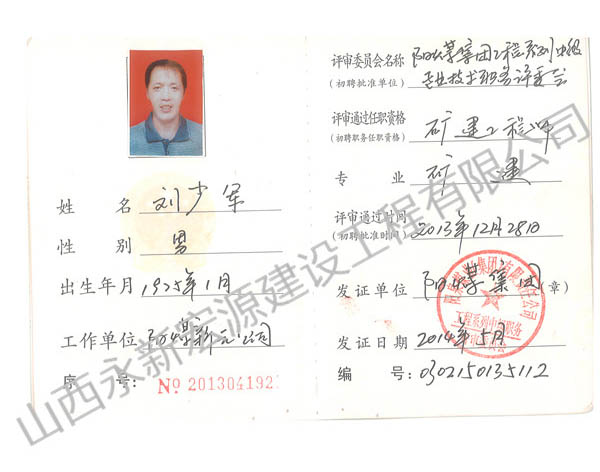 姓 名 刘少军
性 别 男
出生年月 1975年1月
工作单位 阳煤新元公司
序 号: No 201304192
评审委员会名称 阳煤集团工程系列中级
(初聘批准单位) 专业技术职务评委会
评审通过任职资格 矿建工程师
(初聘职务任职资格)
专 业 矿 建
评审通过时间
(初聘批准时间) 2013年12月28日
发证单位 阳煤集团 (章)
工程系列中级职务
发证日期 2014年5月
编 号: 0302150135112
山西永新宏源建设工程有限公司